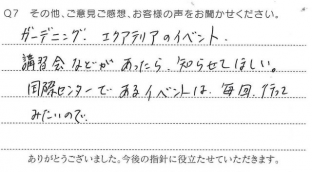 Q7 その他、ご意見ご感想、お客様の声をお聞かせください。
ガーデニング、エクアテリアのイベント、
講習会などがあったら、知らせてほしい。
国際センターであるイベントは、毎回、行って
みたいので、
ありがとうございました。今後の指針に役立たせていただきます。